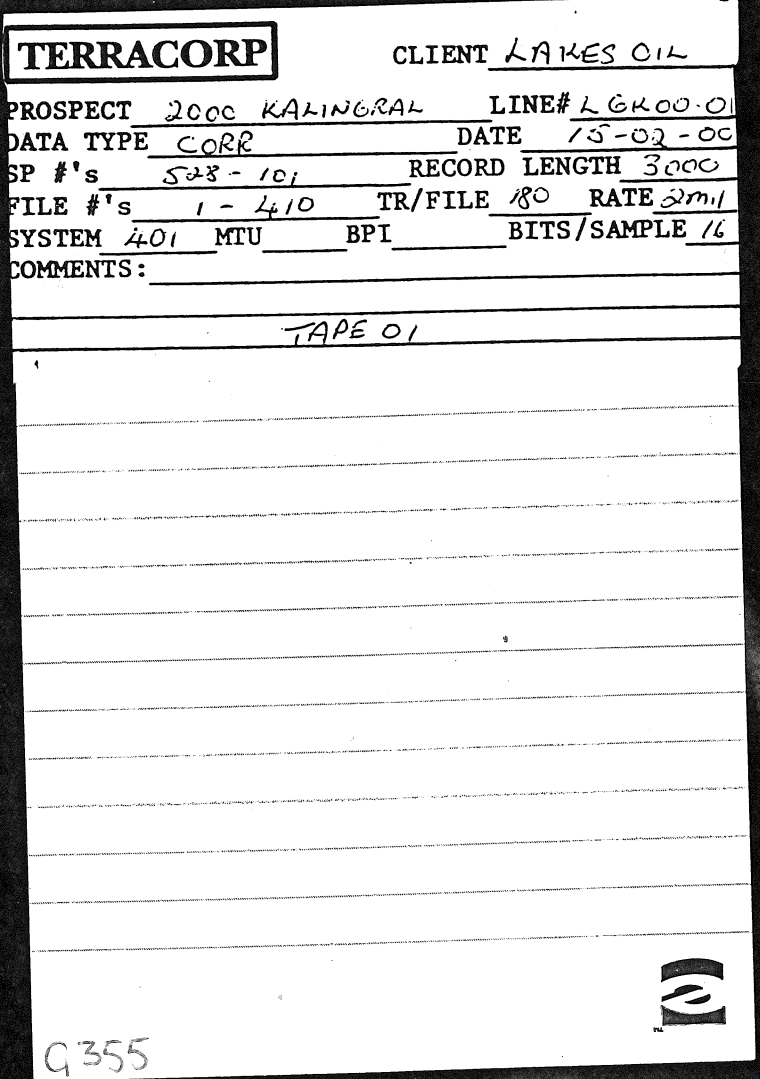 TERRACORP CLIENT LAKES OIL
PROSPECT 2000 KALINGRAL LINE# LGK00-01
DATA TYPE CORR DATE 15-02-00
SP #'s 528 - 101 RECORD LENGTH 3000
FILE #'s 1 - 410 TR/FILE 180 RATE 2mil
SYSTEM 401 MTU BPI BITS/SAMPLE 16
COMMENTS:
TAPE 01
G355